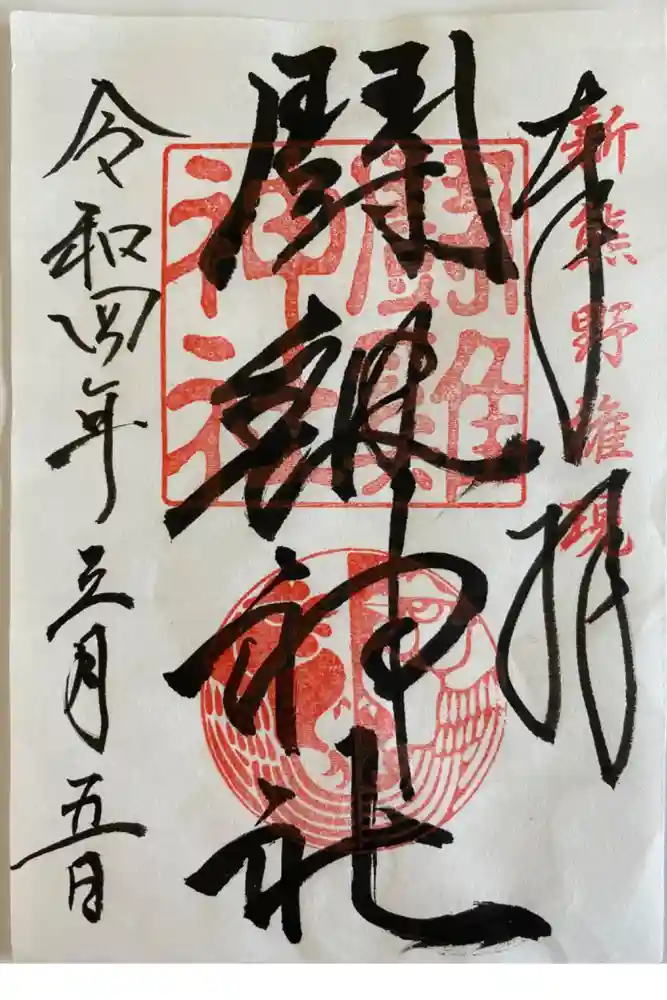 新熊野權現
奉拝
鬪雞神社
鬪雞神社
令和四年三月五日